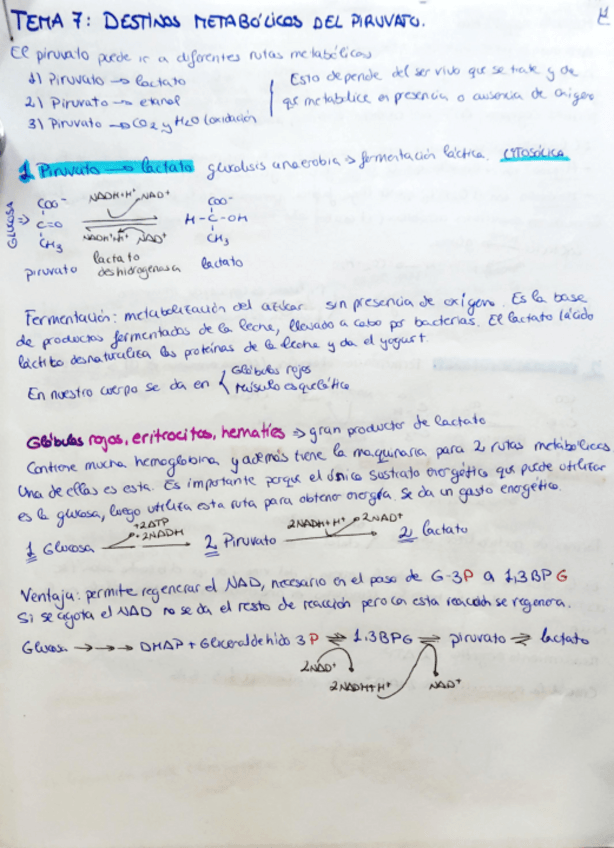 TEMA 7: DESTINOS METABÓLICOS DEL PIRUVATO.
El piruvato puede ir a diferentes rutas metabólicas
1) Piruvato → lactato
2) Piruvato → etanol
3) Piruvato → CO2 y H2O (oxidación
Esto depende del ser vivo que se trate y de
que metabolice en presencia o ausencia de oxígeno
1 Piruvato → lactato glucolisis anaerobia → fermentación láctica. CITOSÓLICA
GLUCOSA ⇒
COO-
C=O
CH3
piruvato
NADH+H+ NAD+
NADH+H+ NAD+
lactato
deshidrogenasa
COO-
H-C-OH
CH3
lactato
Fermentación: metabolización del azúcar sin presencia de oxígeno. Es la base
de productos fermentados de la leche, llevado a cabo por bacterias. El lactato (ácido
láctico desnaturaliza las proteínas de la leche y da el yogurt.
En nuestro cuerpo se da en { Glóbulos rojos
Músculo esquelético
Glóbulos rojos, eritrocitos, hematíes ⇒ gran productor de lactato
Contiene mucha hemoglobina y además tiene la maquinaria para 2 rutas metabólicas
Una de ellas es esta. Es importante porque el único sustrato energético que puede utilizar
es la glucosa, luego utiliza esta ruta para obtener energía. Se da un gasto energético.
+2ATP
2NADH
2NADH+H+ 2NAD+
1 Glucosa → 2 Piruvato → 2 lactato
Ventaja: permite regenerar el NAD, necesario en el paso de G-3P a 1,3BPG
Si se agota el NAD no se da el resto de reacción pero con esta reacción se regenera.
Glucosa →→→ DHAP + Gliceraldehido 3P ⇌ 1,3BPG ⇌ piruvato ⇌ lactato
2NAD+
2NADH+H+
NAD+